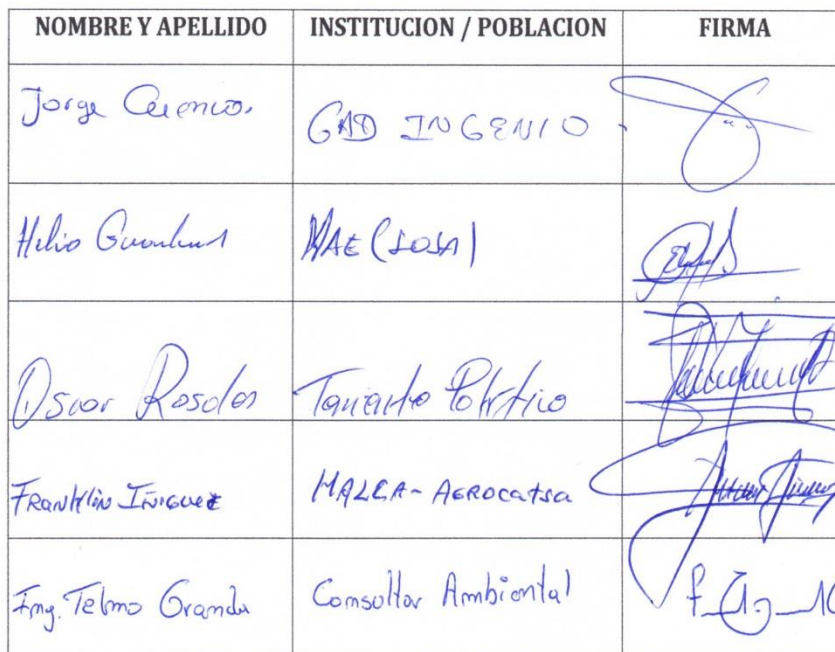 NOMBRE Y APELLIDO INSTITUCION / POBLACION FIRMA
Jorge Cuenca. GAD INGENIO.
Helio MAE (LOJA)
Oscar Rosales Político
FRANKLIN IÑIGUEZ MALCA - AGROCATSA
Ing. Telmo Granda Consultor Ambiental